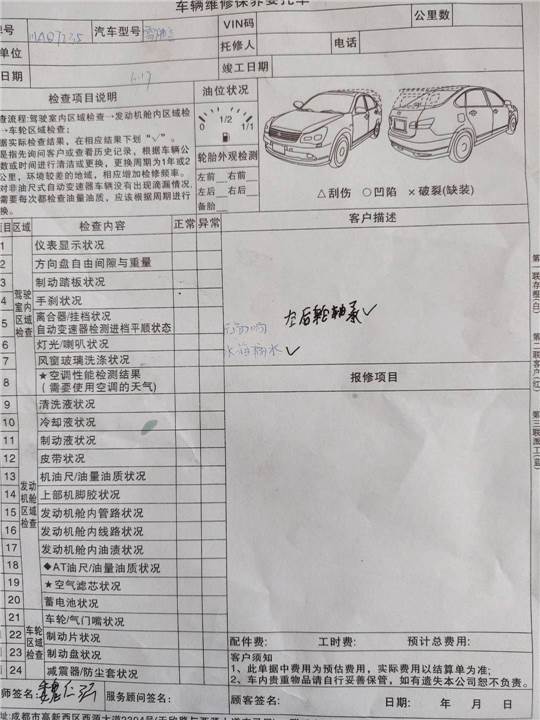 车辆维修保养委托单
号 汽车型号 VIN码 公里数
单位 托修人 电话
日期 竣工日期
检查项目说明 油位状况
查流程:驾驶室内区域检查→发动机舱内区域检
→车轮区域检查;
据实际检查结果,在相应结果下划“√”。
是指先询问客户或查看历史记录,根据车辆公
数或时间进行清洁或更换,更换周期为1年或2
公里,环境较差的地域,相应增加检修频率。
对非油尺式自动变速器车辆没有出现滴漏情况,
需要每次都检查油量油质,应该根据周期进行
换。
0 1/2 1/1
轮胎外观检测
左前 右前
左后 右后
备胎
△刮伤 ○凹陷 ×破裂(缺装)
项目 区域 检查内容 正常 异常 客户描述
驾驶室内区域检查
1 仪表显示状况
2 方向盘自由间隙与重量
3 制动踏板状况
4 手刹状况
5 离合器/挂档状况
自动变速器检测进档平顺状态
6 灯光/喇叭状况
7 风窗玻璃洗涤状况
8 ★空调性能检测结果
(需要使用空调的天气)
左后轮轴承√
水箱漏水√
报修项目
发动机舱区域检查
9 清洗液状况
10 冷却液状况
11 制动液状况
12 皮带状况
13 机油尺/油量油质状况
14 上部机脚胶状况
15 发动机舱内管路状况
16 发动机舱内线路状况
17 发动机舱内油渍状况
18 ◆AT油尺/油量油质状况
19 ★空气滤芯状况
20 蓄电池状况
车轮区域检查
21 车轮/气门嘴状况
22 制动片状况
23 制动盘状况
24 减震器/防尘套状况
配件费: 工时费: 预计总费用:
客户须知
1、此单据中费用为预估费用,实际费用以结算单为准;
2、车内贵重物品请自行妥善保管,如有遗失本公司恕不负责。
师签名: 服务顾问签名: 顾客签名: 日期: 年 月 日
第一联存根(白)
第二联客户(红)